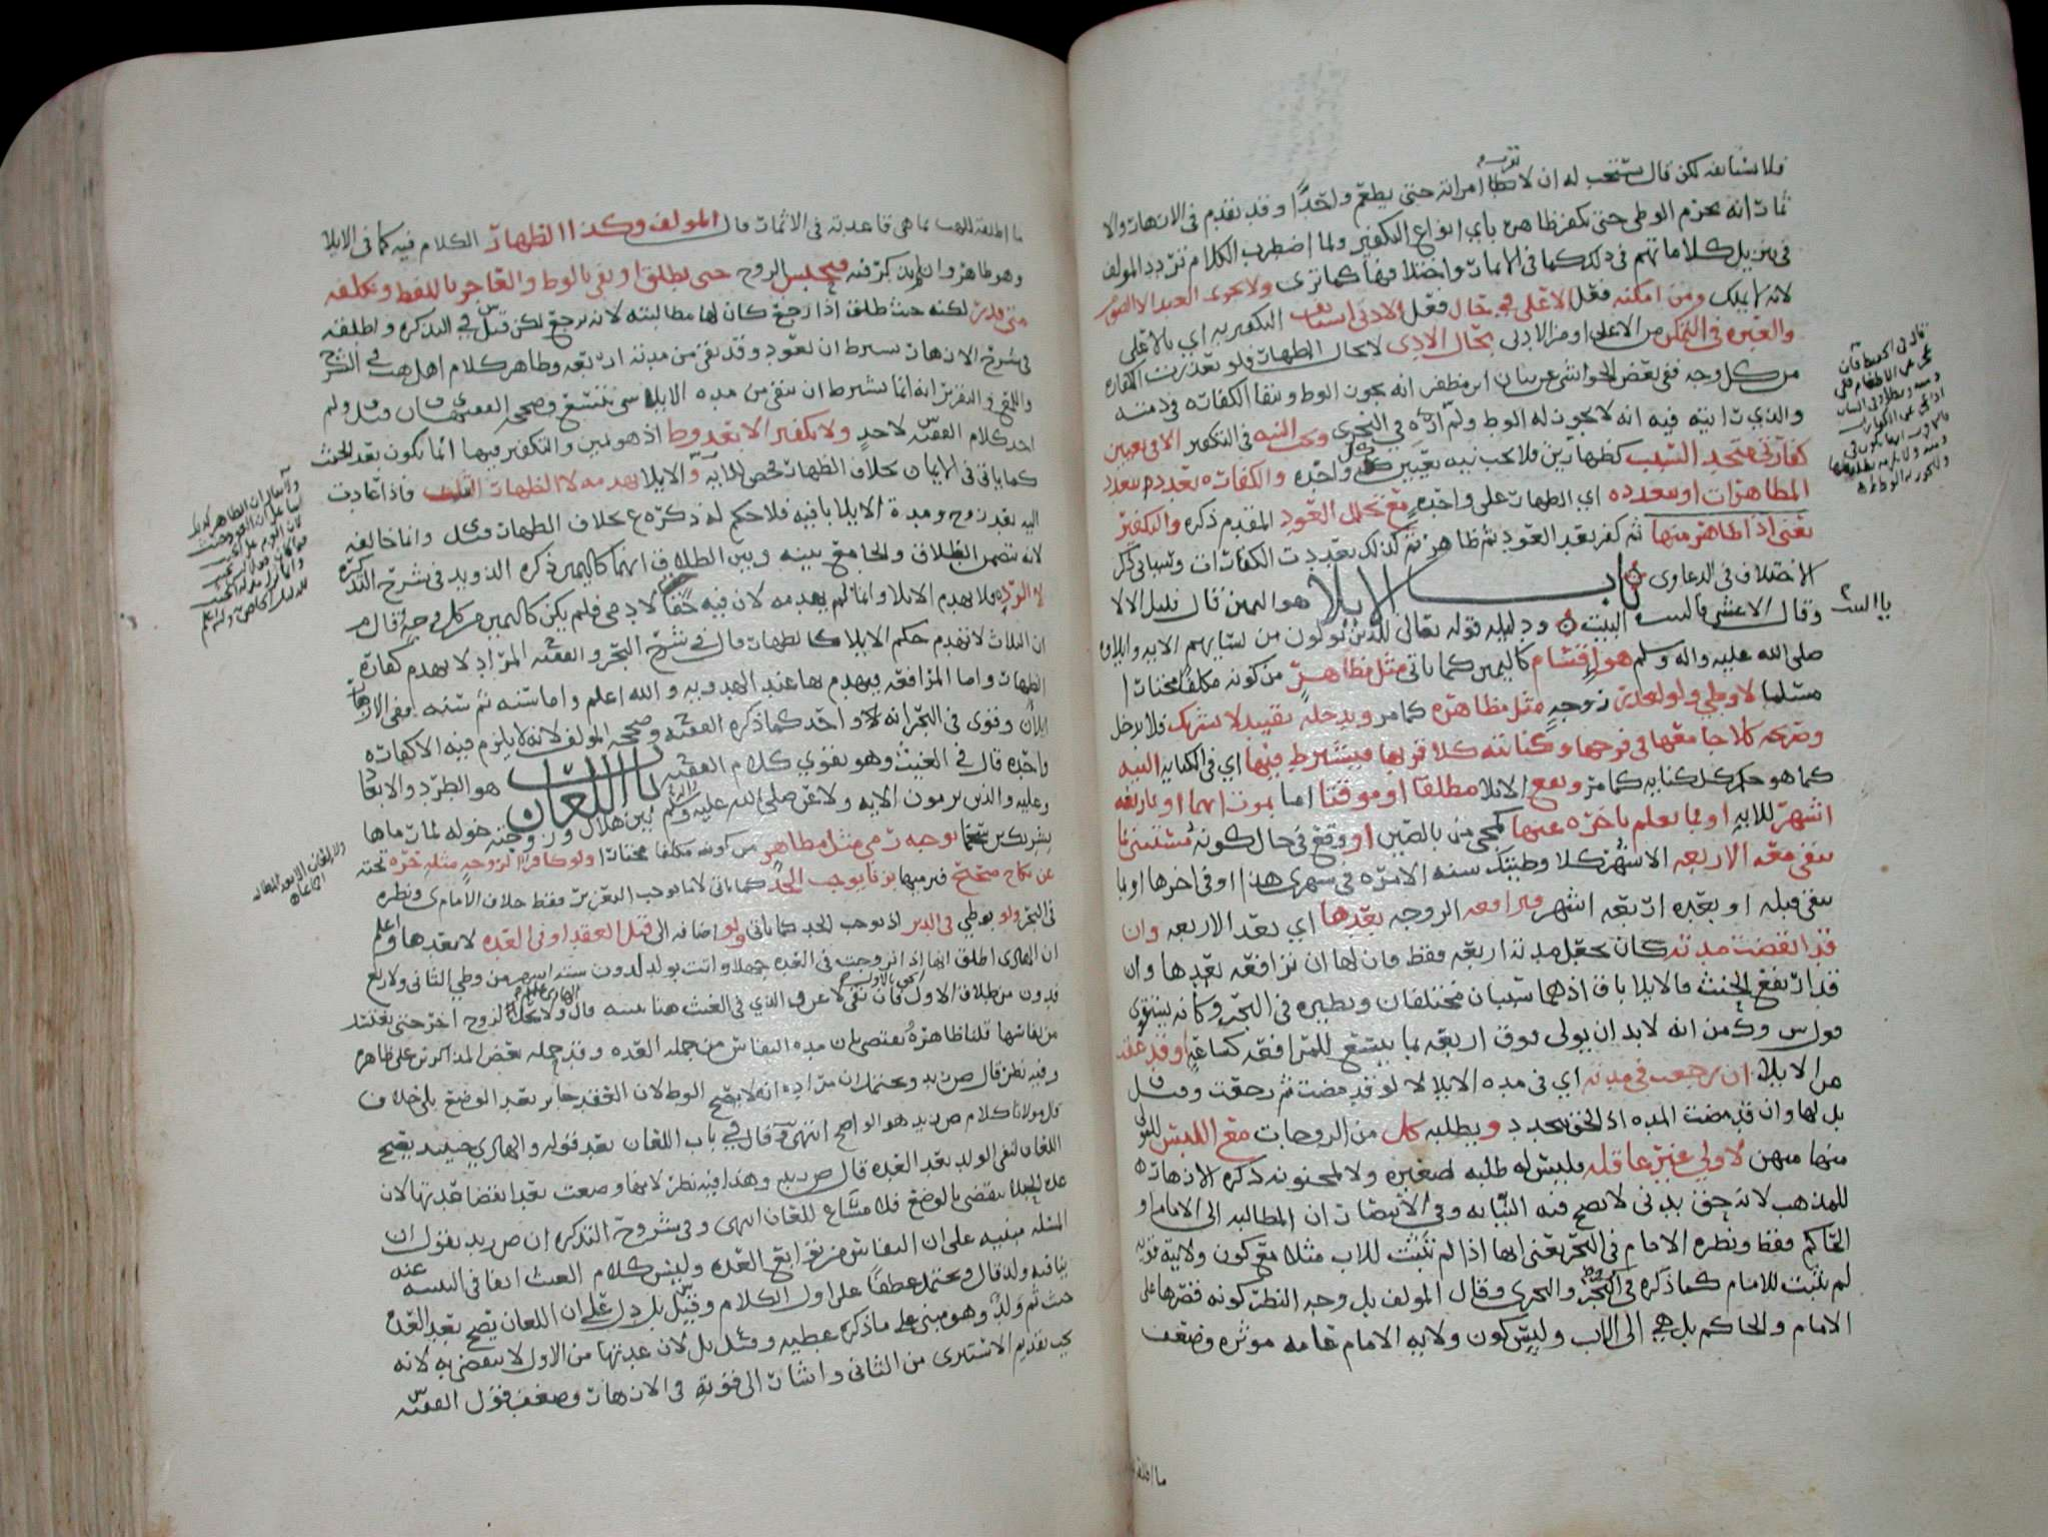 فلا يستأنف لكن قال يستحب له ان لا يطأ امرأته حتى يطعم واحدا وقد تقدم في الازهار والا
ثمار انه يحرم الوطي حتى يكفر ظاهره باي انواع التكفير ولما اضطرب الكلام تردد المولف
في تنزيل كلاماتهم في ذلك كما في الاثمار واختلافها كما ترى ولا يجزي العبد الا الصوم
لانه لا يملك ومن امكنه فعل الاعلى في حال فعل الادنى استأنف التكفير به اي بالاعلى
والعبرة في التمكن من الاعلى او من الادنى بحال الادى لا بحال الظهار فلو تعذرت الكفارة
من كل وجه ففي بعض الحواشي عن بنان ابن مظفر انه يجوز الوطء وتبقا الكفارة في ذمته
والذي رايته فيه انه لا يجوز له الوطء ولم اره في البحر وتجب النية في التكفير الا في تعيين
كفارتي متحد السبب كظهارين فلا يجب نية تعيين كل واحدة والكفارة تعدد بتعدد
المظاهرات او بتعدده اي الظهار على واحدة مع تخلل العود المقدم ذكره والتكفير
يعني اذا ظاهر منها ثم كفر بعد العود ثم ظاهر ثم كذلك تعددت الكفارات وسياتي ذكر
الاختلاف في الدعاوى باب الايلا هو اليمين قال قليل الالا
وقال الاعشى البيت ودليله قوله تعالى للذين يولون من نسايهم الايه وايلاوه
صلى الله عليه واله وسلم هو اقسام كاليمين كما ياتي مثل مظاهر من كونه مكلفا مختارا
مسلما لا وطي ولو لعذر زوجة مثل مظاهرة كما مر ويدخله تقييد لا تشريك فلا يدخل
وصريحه كلا جامعها في فرجها وكنايته كلا قربها فيشترط فيها اي في الكناية النية
كما هو حكم كل كناية كما مر ويقع الايلا مطلقا او موقتا اما بموت ايهما او باربعة
اشهر للاية او بما يعلم تاخره عنها كمجي من بالصين او وقع في حال كونه مستثنيا
تبقى معه الاربعة الاشهر كلا وطيتك سنة الا مرة في شهري هذا او في اخرها او ما
تبقى قبله او بعده اربعة اشهر فيرافعه الزوجة بعدها اي بعد الاربعة وان
قد انقضت مدته كان يجعل مدته اربعة فقط فان لها ان ترافعه بعدها وان
قد ارتفع الحنث فالايلا باق اذ هما شيان مختلفان ونظره في البحر
قول س وك من انه لا بد ان يولي فوق اربعة بما يتسع للمرافعة كساعة او قد عقد
من الايلا ان رجعت في مدته اي في مدة الايلا لا لو قد مضت ثم رجعت وقيل
بل لها وان قد مضت المدة اذ الحق يتجدد ويطلبه كل من الزوجات مع اللبس للمولى
منها منهن لا ولي غير عاقله فليس له طلبه لصغيره ولا لمجنونه ذكره الازهار
للمذهب لانه حق بدني لا يصح فيه النيابة وفي الانتصار ان المطالبة الى الامام او
الحاكم فقط ونظره الامام في البحر يعني انها اذا لم تثبت للاب مثلا مع كون ولايته قوية
لم يثبت للامام كما ذكره في البحر والبحري وقال المولف بل وجه النظر كونه قصرها على
الامام والحاكم بل هي الى الاب وليس كون ولاية الامام عامة موثره وضعف
باب الست
ما اطلقه للمذهب بما هي قاعدته في الاثمار قال المولف وكذا الظهار الكلام فيه كما في الايلا
وهو ظاهر وان لم يذكر فيه فيحبس الزوج حتى يطلق او يفي بالوطء والعاجز باللفظ ويكلفه
متى قدر لكنه حيث طلق اذا رجع كان لها مطالبته لانه يرجع لكن قيل في التذكرة واطلقه
في شرح الازهار بشرط ان تعود وقد بقي من مدته اربعة وظاهر كلام اهل هب في الشرح
واللمع والتقرير انه انما يشترط ان تبقى من مدة الايلا شي متسع وصححه الفقيهان ف ول ولم
اجد كلام الفقيه لاحد ولا تكفير الا بعد وطء اذ هو يمين والتكفير فيها انما يكون بعد الحنث
كما ياتي في الايمان بخلاف الظهار فخص بالاية والايلا يهدمه لا الظهار الثلث فاذا عادت
اليه بعد زوج ومدة الايلا باقية فلا حكم له ذكره ع بخلاف الظهار وقيل وانما خالفه
لانه تضمن الطلاق والجامع بينه وبين الطلاق انهما كاليمين ذكره الدويد في شرح التذكرة
لا الردة فلا يهدم الايلا وانما لم يهدمه لان فيه حقا لادمي فلم يكن كاليمين من كل وجه قال م
ان الثلاث لا تهدم حكم الايلا كالظهار قال في شرح البحر والفقيه المراد لا يهدم كفارة
الظهار واما المرافعة فيهدمها عند الهدوية والله اعلم واما سنه ثم سنه ففي الازهار
ايلان وقوى في البحر انه لاواحد كما ذكره الفقيه وصححه المولف لانه لا يلزم فيه الا كفارة
واحدة قال في الغيث وهو يقوي كلام الفقيه باب اللعان هو الطرد والابعاد
وعليه والذين يرمون الاية ولاعن صلى الله عليه وسلم بين هلال وزوجته خولة لما رماها
بشريك بن سحما يوجبه رمي مثل مظاهر من كونه مكلفا مختارا ولو كافرا لزوجة مثله حرة تحته
عن نكاح صحيح فيرميها بزنا يوجب الحد كما ياتي لا بما يوجب التعزير فقط خلاف الامام ي ونظره
في البحر ولو بوطي في الدبر اذ يوجب الحد كما ياتي ولو اضافه الى قبل العقد او في العدة لا بعدها واعلم
ان الهادي اطلق انها اذا تزوجت في العدة جهلا واتت بولد لدون ستة اشهر من وطي الثاني ولاربع
فدون من طلاق الاول فان نفى لاعن والذي في الغيث هنا عنه قال ولا تحل لزوج اخر حتى تغتسل
من نفاسها قلنا ظاهره يقتضي بان مدة النفاس من جملة العدة وقد حمله بعض المذاكرين على ظاهره
وفيه نظر قال ص زيد ويحتمل ان مراده انه لا يصح الوطء لان العقد جايز بعد الوضع بلا خلاف
قال مولانا كلام ص زيد هو الواضح انتهى وقال في باب اللعان بعد قوله والهادي حينيذ يصح
اللعان لنفي الولد بعد العدة قال ص زيد وهذا فيه نظر لانها وضعت بعد انقضا عدتها لان
عدة الحبلا تنقضي بالوضع فلا مساغ للعان انتهى وفي شروح التذكرة ان ص زيد يقول ان
المسلة مبنية على ان النفاس من توابع العدة وليس كلام الغيث
ينافيه ولد قال ويحتمل عطفا على اول الكلام وقيل بل دل على ان اللعان يصح بعد العدة
حيث ثم ولد وهو مبني على ما ذكره عطية وقيل بل لان عدتها من الاول لا تنقضي به لانه
يجب تقديم الاستبرى من الثاني واشار الى قوته في الازهار وضعف قول الفقيه